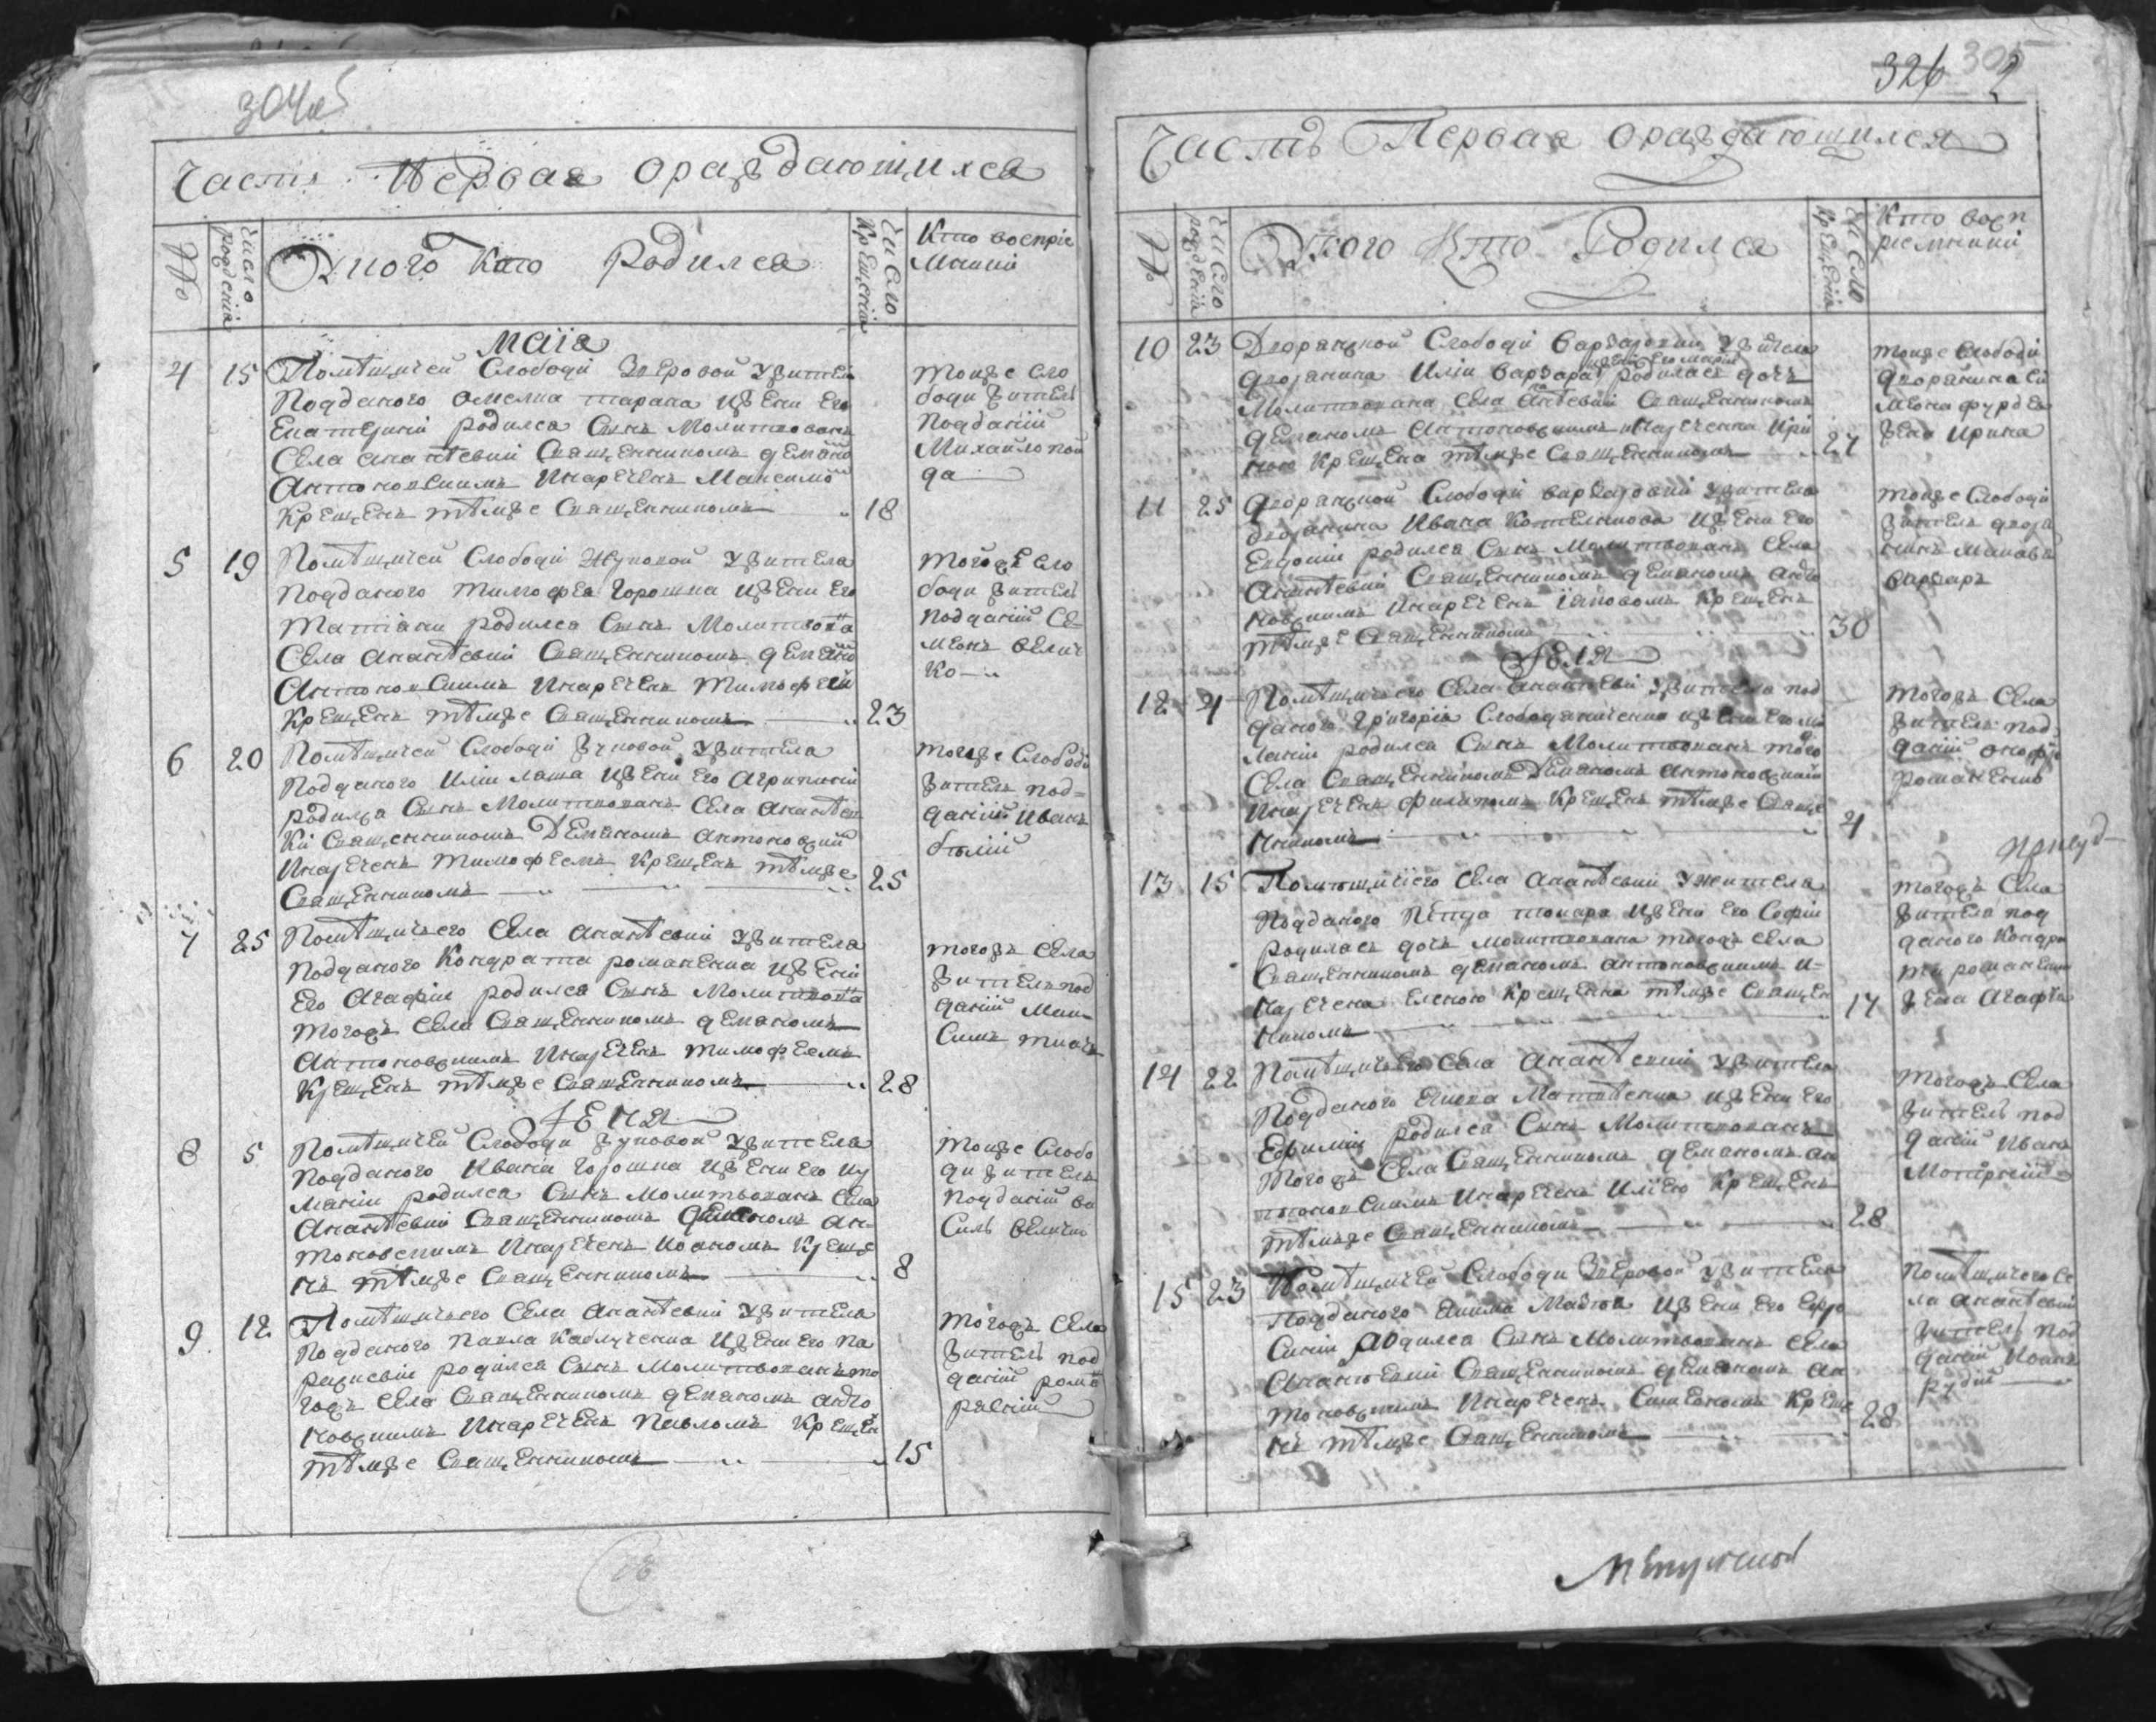 304об
Часть Первая ораждающихся
№
Число рождения
У кого Кто родился
Число Крещения
Кто восприе
мники
Маiя
4 15 Помѣщичей Слободи жителя
Подданого Омелка тарана Изжени Его
Екатерини родился Сынъ Молитвованъ
Села Ананѣевки Священникомъ демяно
Антоновскимъ Инареченъ Максимо
Крещенъ тѣмже Священникомъ 18
тоиже сло
боди житель
Подданiй
Михайло
да
5 19 Помѣщичей Слободи Жуковой Ужителя
Подданого Тимофея Горошка Изжени Его
Татiани родился Сынъ Молитвова
Села Ананѣевки Священникомъ демяно
Антоновскимъ Инареченъ Тимофей
Крещенъ тѣмже Священникомъ 23
тогожъ сло
боди житель
подданiй Се
менъ велич
ко
6 20 Помѣщичей Слободи Жуковой Ужителя
Подданого Илiи Изжени Его Агрипини
родился Сынъ Молитвованъ Села Ананѣев
кi Священникомъ Демяномъ Антоновским
Инареченъ Тимофеемъ Крещенъ тѣмже
Священникомъ 25
тоиже Слободи
житель под
данiй Иванъ
бѣлiй
7 25 Помѣщичьего Села Ананѣевки Ужителя
Подданого Кондрата романенка Изжени
Его Агафiи родился Сынъ Молитвова
тогожъ Села Священникомъ демяномъ
Антоновскимъ Инареченъ Тимофеемъ
Крещенъ тѣмже Священникомъ 28
тогожъ Села
житель под
данiй Мак
симъ
Iюня
8 5 Помѣщичей Слободи Жуковой Ужителя
Подданого Ивана Горошка Изжени Его Иу
лиянiи родился Сынъ Молитвованъ Села
Ананѣевки Священникомъ демяномъ Ан
тоновскимъ Инареченъ Иоаномъ Креще
нъ тѣмже Священникомъ 8
тоиже Слобо
ди житель
Подданiй Ва
силь величко
9 12 Помѣщичьего Села Ананѣевки Ужителя
Подданого Павла Каблученка Изжени Его Па
раскевiи родился Сынъ Молитвованъ то
гожъ Села Священникомъ демяномъ Анто
новскимъ Инареченъ Павломъ Крещен
тѣмже Священникомъ 15
тогожъ Села
житель под
данiй рома
326 305
Часть Первая ораждающихся
№
Число рождения
У кого Кто Родился
Число Крещения
Кто восп
риемники
10 23 Дворянской Слободи Варваровки Ужителя
дворянина Илiи Варвара родилась дочь
изжени Его Марiи
Молитвована Села Ананѣевки Священникомъ
демяномъ Антоновскимъ Инаречена Ири
ною Крещена тѣмже Священникомъ 27
тоиже Слободи
дворянина Си
меона
жена Ирина
11 25 Дворянской Слободи Варваровки Ужителя
дворянина Ивана Котелникова Изжени Его
Евдокiи родился Сынъ Молитвованъ Села
Ананѣевки Священникомъ демяномъ Анто
новскимъ Инареченъ Iаковомъ Крещенъ
тѣмже Священникомъ 30
тоиже Слободи
житель дворя
нинъ
варваръ
Iюля
12 4 Помѣщичьего Села Ананѣевки Ужителя под
даного Григорiя Слободяниченка Изжени Его Ме
ланiи родился Сынъ Молитвованъ того
Села Священникомъ Демяномъ Антоновским
Инареченъ Филипомъ Крещенъ тѣмже Свяще
нникомъ 4
тогожъ Села
житель под
данiй Онофр
романенко
13 15 Помѣщичiего Села Ананѣевки Ужителя
Подданого Петра токара Изжени Его Софiи
родилась дочь Молитвована тогожъ Села
Священникомъ демяномъ Антоновскимъ И
наречена Еленою Крещена тѣмже Священ
никомъ 17
тогожъ Села
жителя под
даного Кондра
та романенка
жена Агафiя
14 22 Помѣщичьего Села Ананѣевки Ужителя
Подданого Якова Матвѣенка Изжени Его
Ефимiи родился Сынъ Молитвованъ
тогожъ Села Священникомъ демяномъ Ан
тоновскимъ Инареченъ Илiею Крещенъ
тѣмже Священникомъ 28
тогожъ Села
житель под
данiй Иванъ
15 23 Помѣщичей Слободи Ужителя
Подданого Якима Изжени Его Евфро
синiи родился Сынъ Молитвованъ Села
Ананѣевки Священникомъ демяномъ Ан
тоновскимъ Инареченъ Симеономъ Креще
нъ тѣмже Священникомъ 28
Помѣщичого Се
ла Ананѣевки
житель под
данiй Иоанъ
рудий